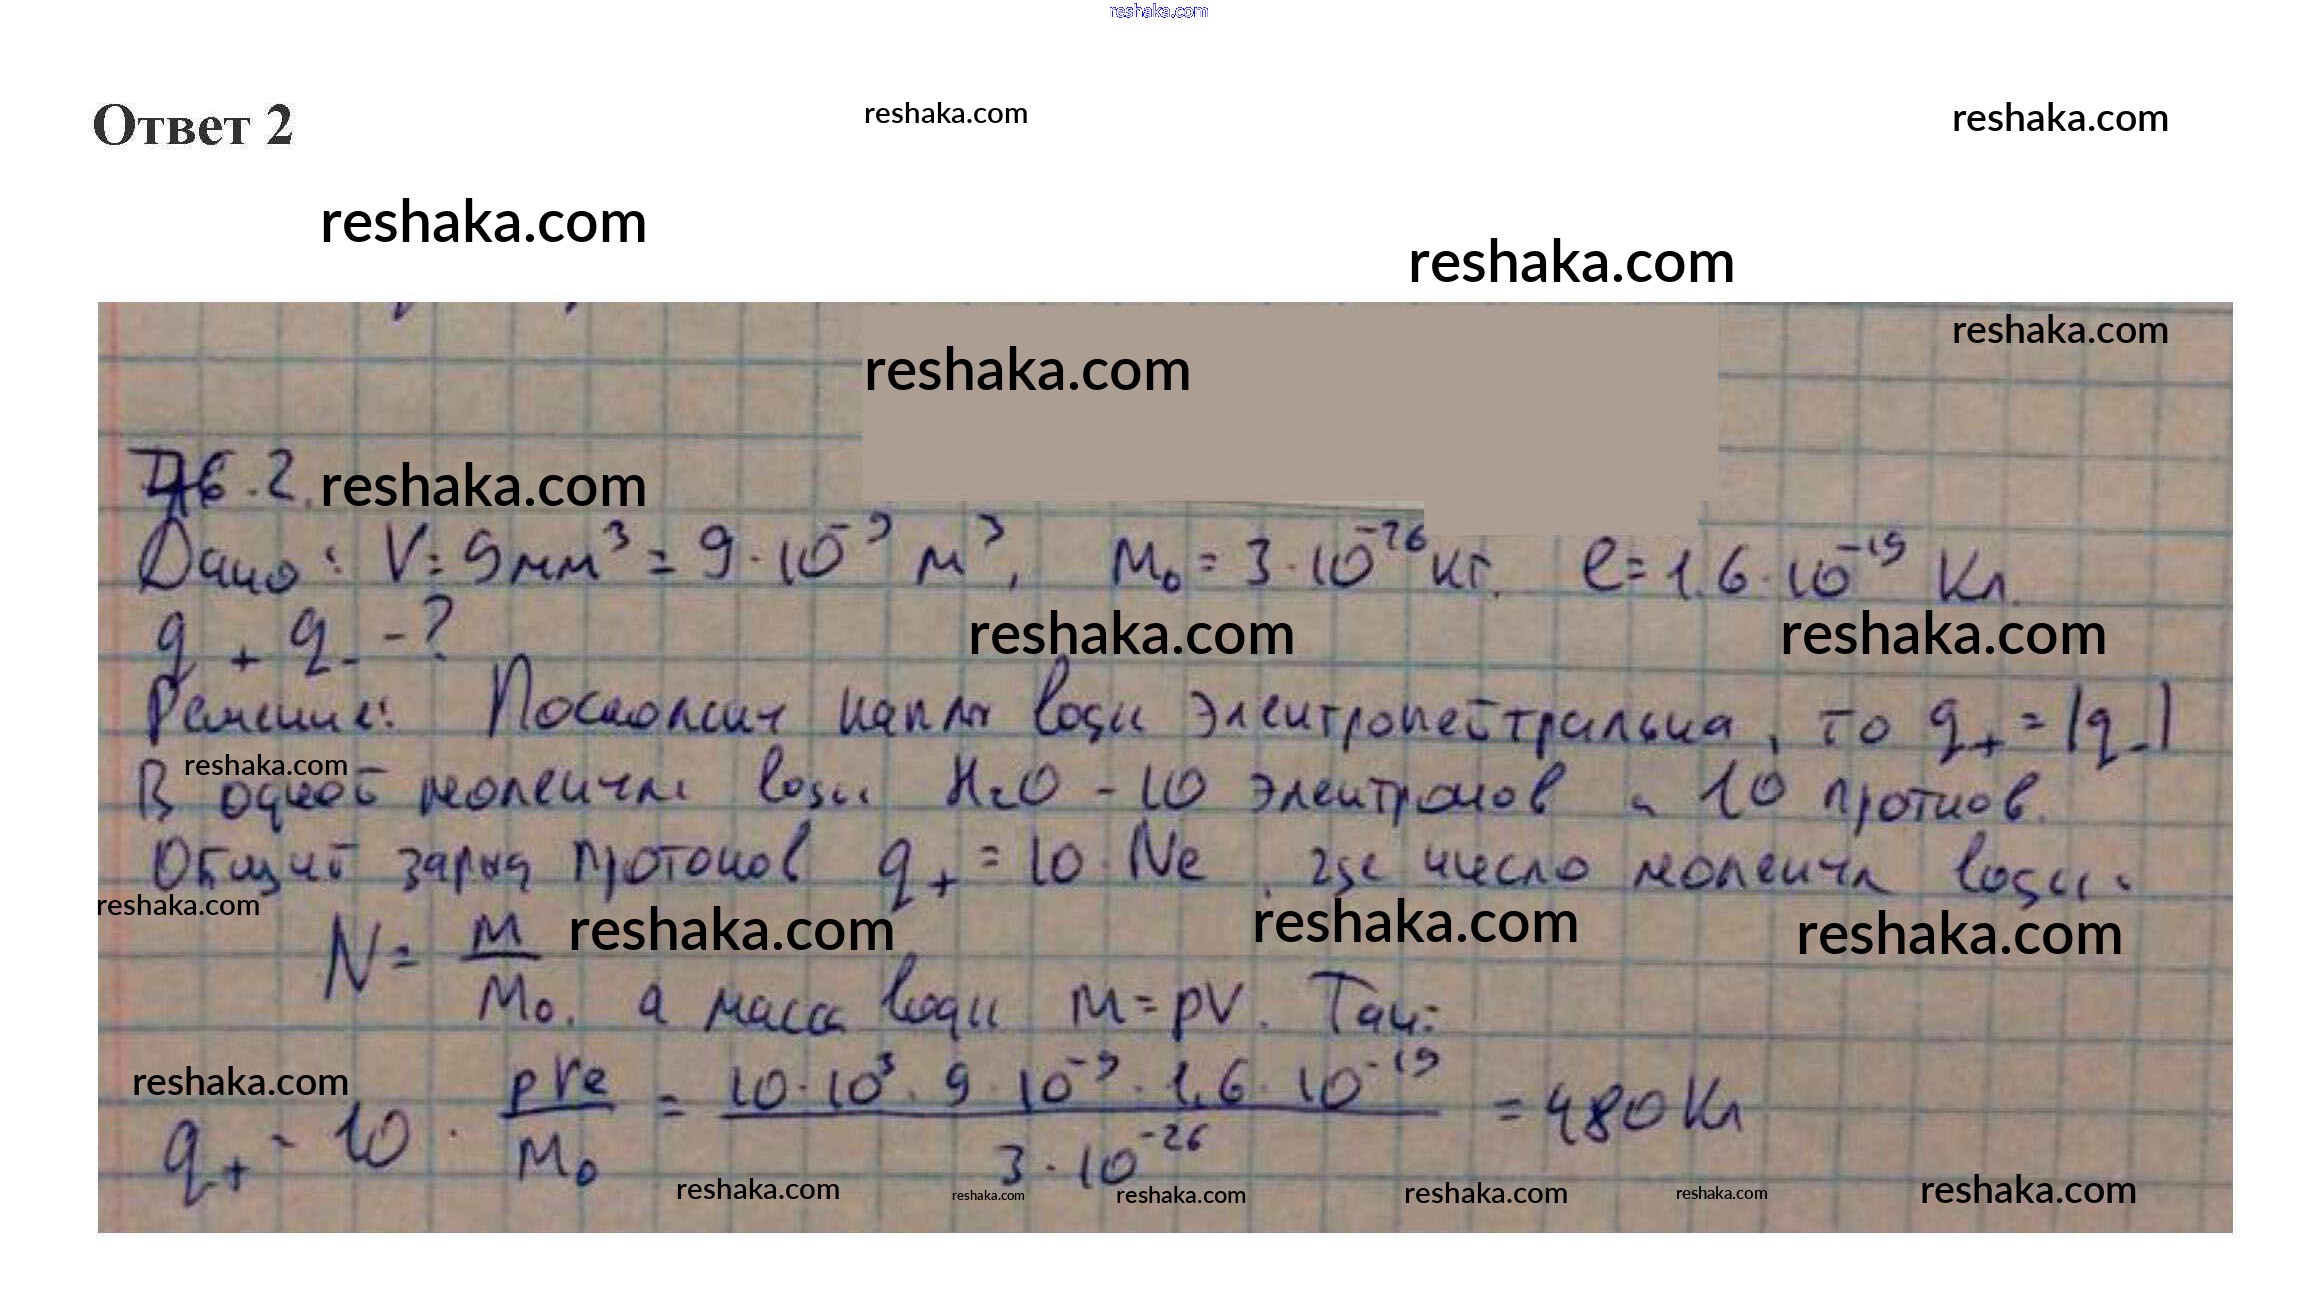 reshaka.com
Ответ 2
reshaka.com
reshaka.com
reshaka.com
reshaka.com
reshaka.com
reshaka.com
6.2. reshaka.com
Дано: V = 9 мм³ = 9 · 10⁻⁹ м³, m₀ = 3 · 10⁻²⁶ кг. e = 1,6 · 10⁻¹⁹ Кл.
q₊ q₋ - ?
reshaka.com reshaka.com
Решение: Поскольку капля воды электронейтральна, то q₊ = |q₋|
reshaka.com
В одной молекуле воды H₂O - 10 электронов и 10 протнов.
Общий заряд протонов q₊ = 10 · Ne, где число молекул воды:
reshaka.com
N = m/m₀, а масса воды m = ρV. Так:
reshaka.com reshaka.com reshaka.com
reshaka.com
q₊ = 10 · ρVe/m₀ = 10 · 10³ · 9 · 10⁻⁹ · 1,6 · 10⁻¹⁹ / 3 · 10⁻²⁶ = 480 Кл
reshaka.com reshaka.com reshaka.com reshaka.com reshaka.com reshaka.com